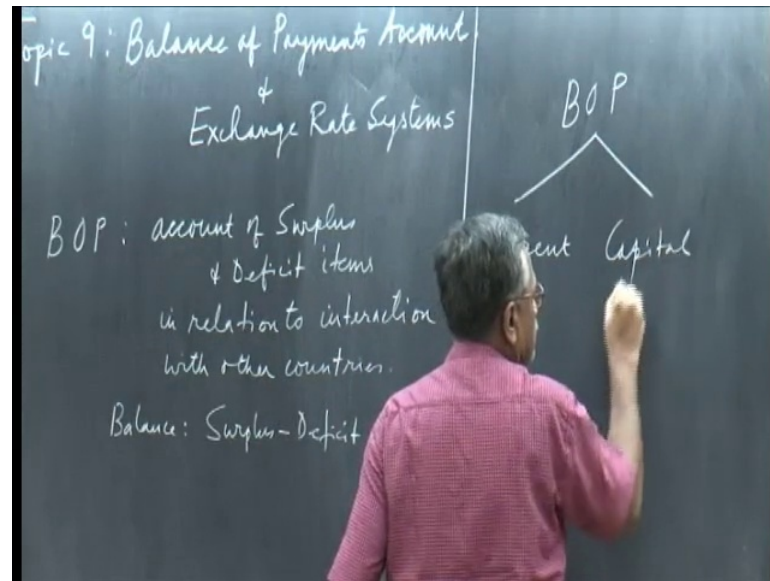 opic 9: Balance of Payments Account
&
Exchange Rate Systems
BOP: account of Surplus
& Deficit items
in relation to interaction
with other countries.
Balance: Surplus-Deficit
BOP
rent Capital